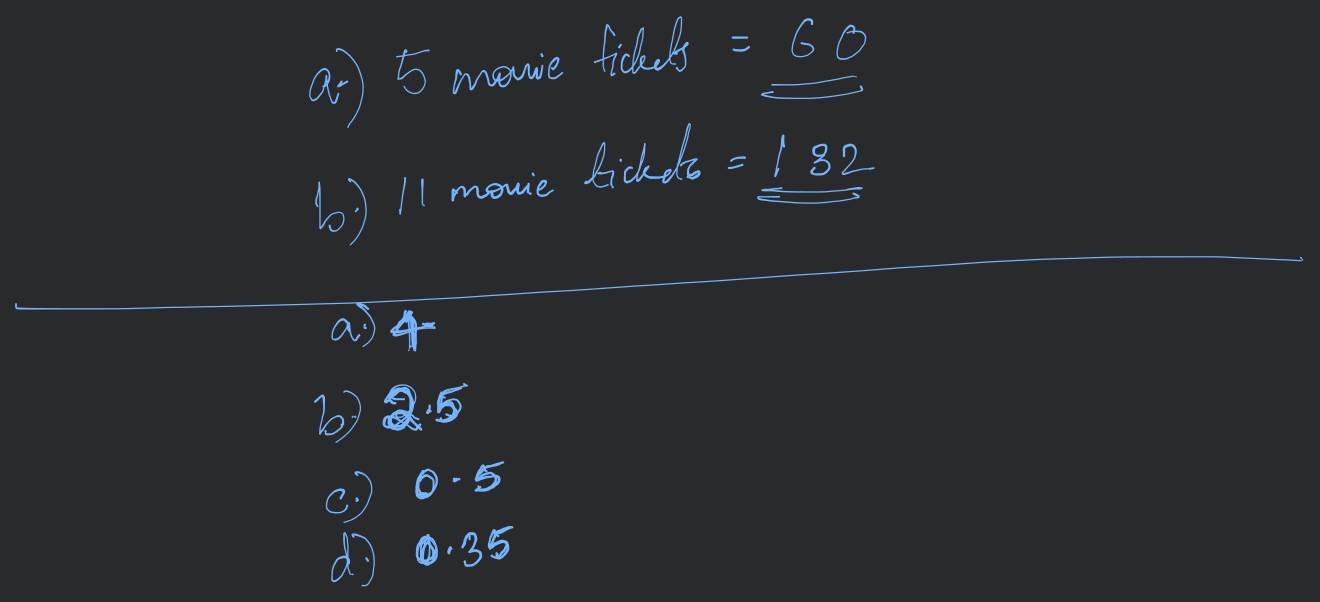 a.) 5 movie tickets = 60
b.) 11 movie tickets = 132
a.) 4
b.) 2.5
c.) 0.5
d.) 0.35